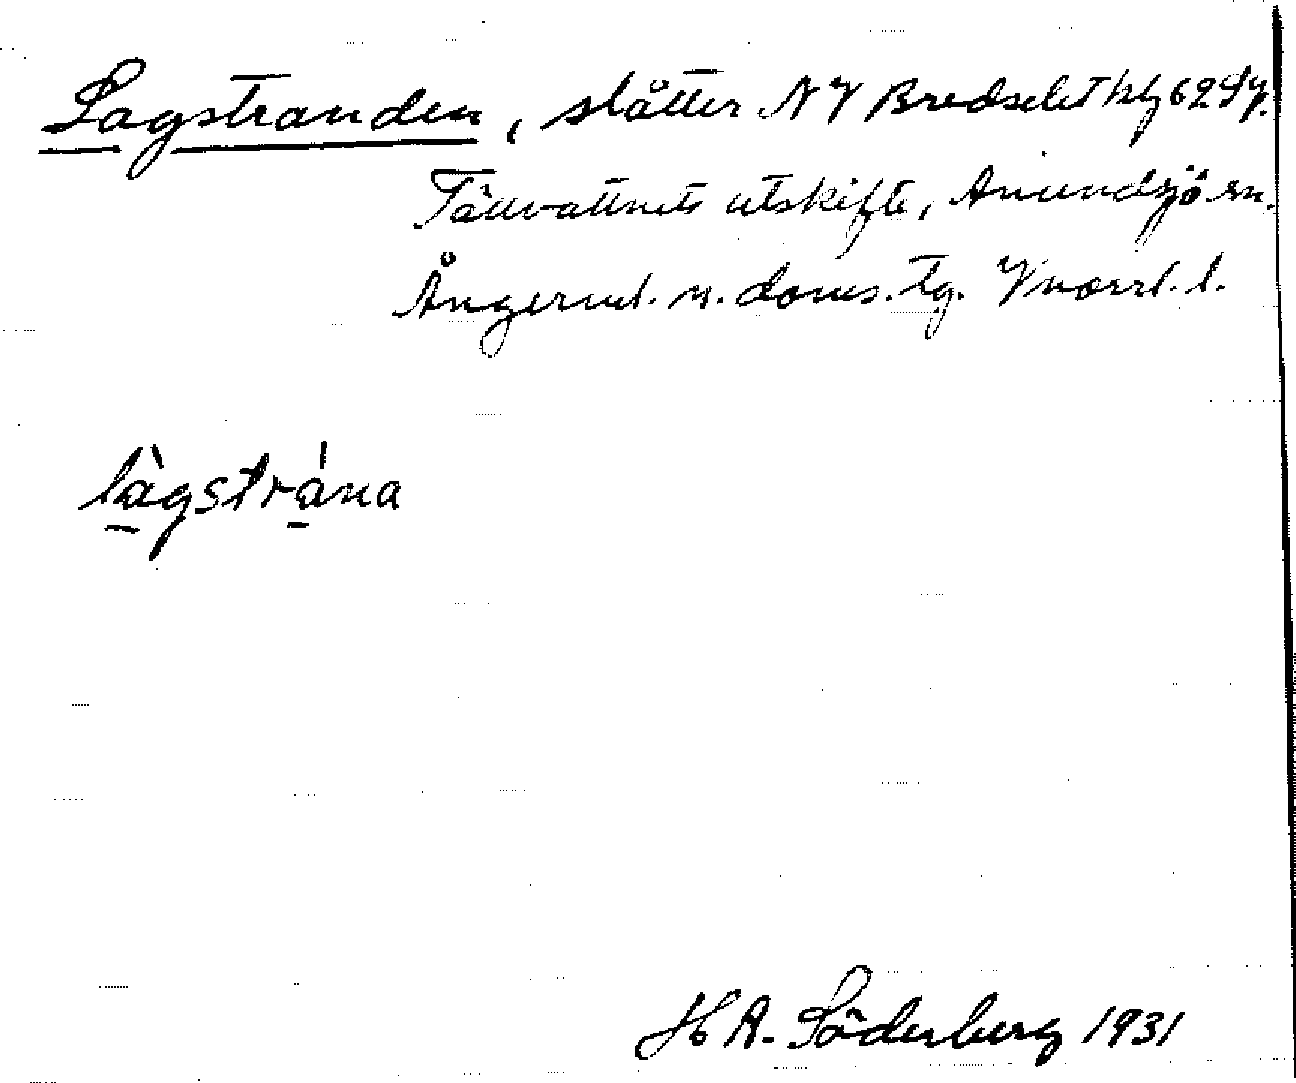 Lagstranden, slåtter NV Bredselet hög 629 y.
Tällvattnets utskifte, Anundsjö sn.
Ångerml. n. doms. tg. Vnorrl. l.
làgstrána
H A. Söderberg 1931